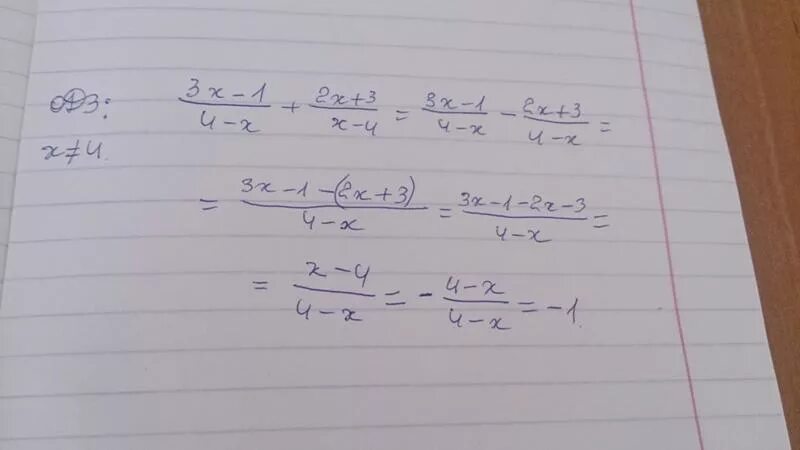 ОДЗ: \frac{3x-1}{4-x} + \frac{2x+3}{x-4} = \frac{3x-1}{4-x} - \frac{2x+3}{4-x} =
x≠4.
= \frac{3x-1-(2x+3)}{4-x} = \frac{3x-1-2x-3}{4-x} =
= \frac{x-4}{4-x} = -\frac{4-x}{4-x} = -1.